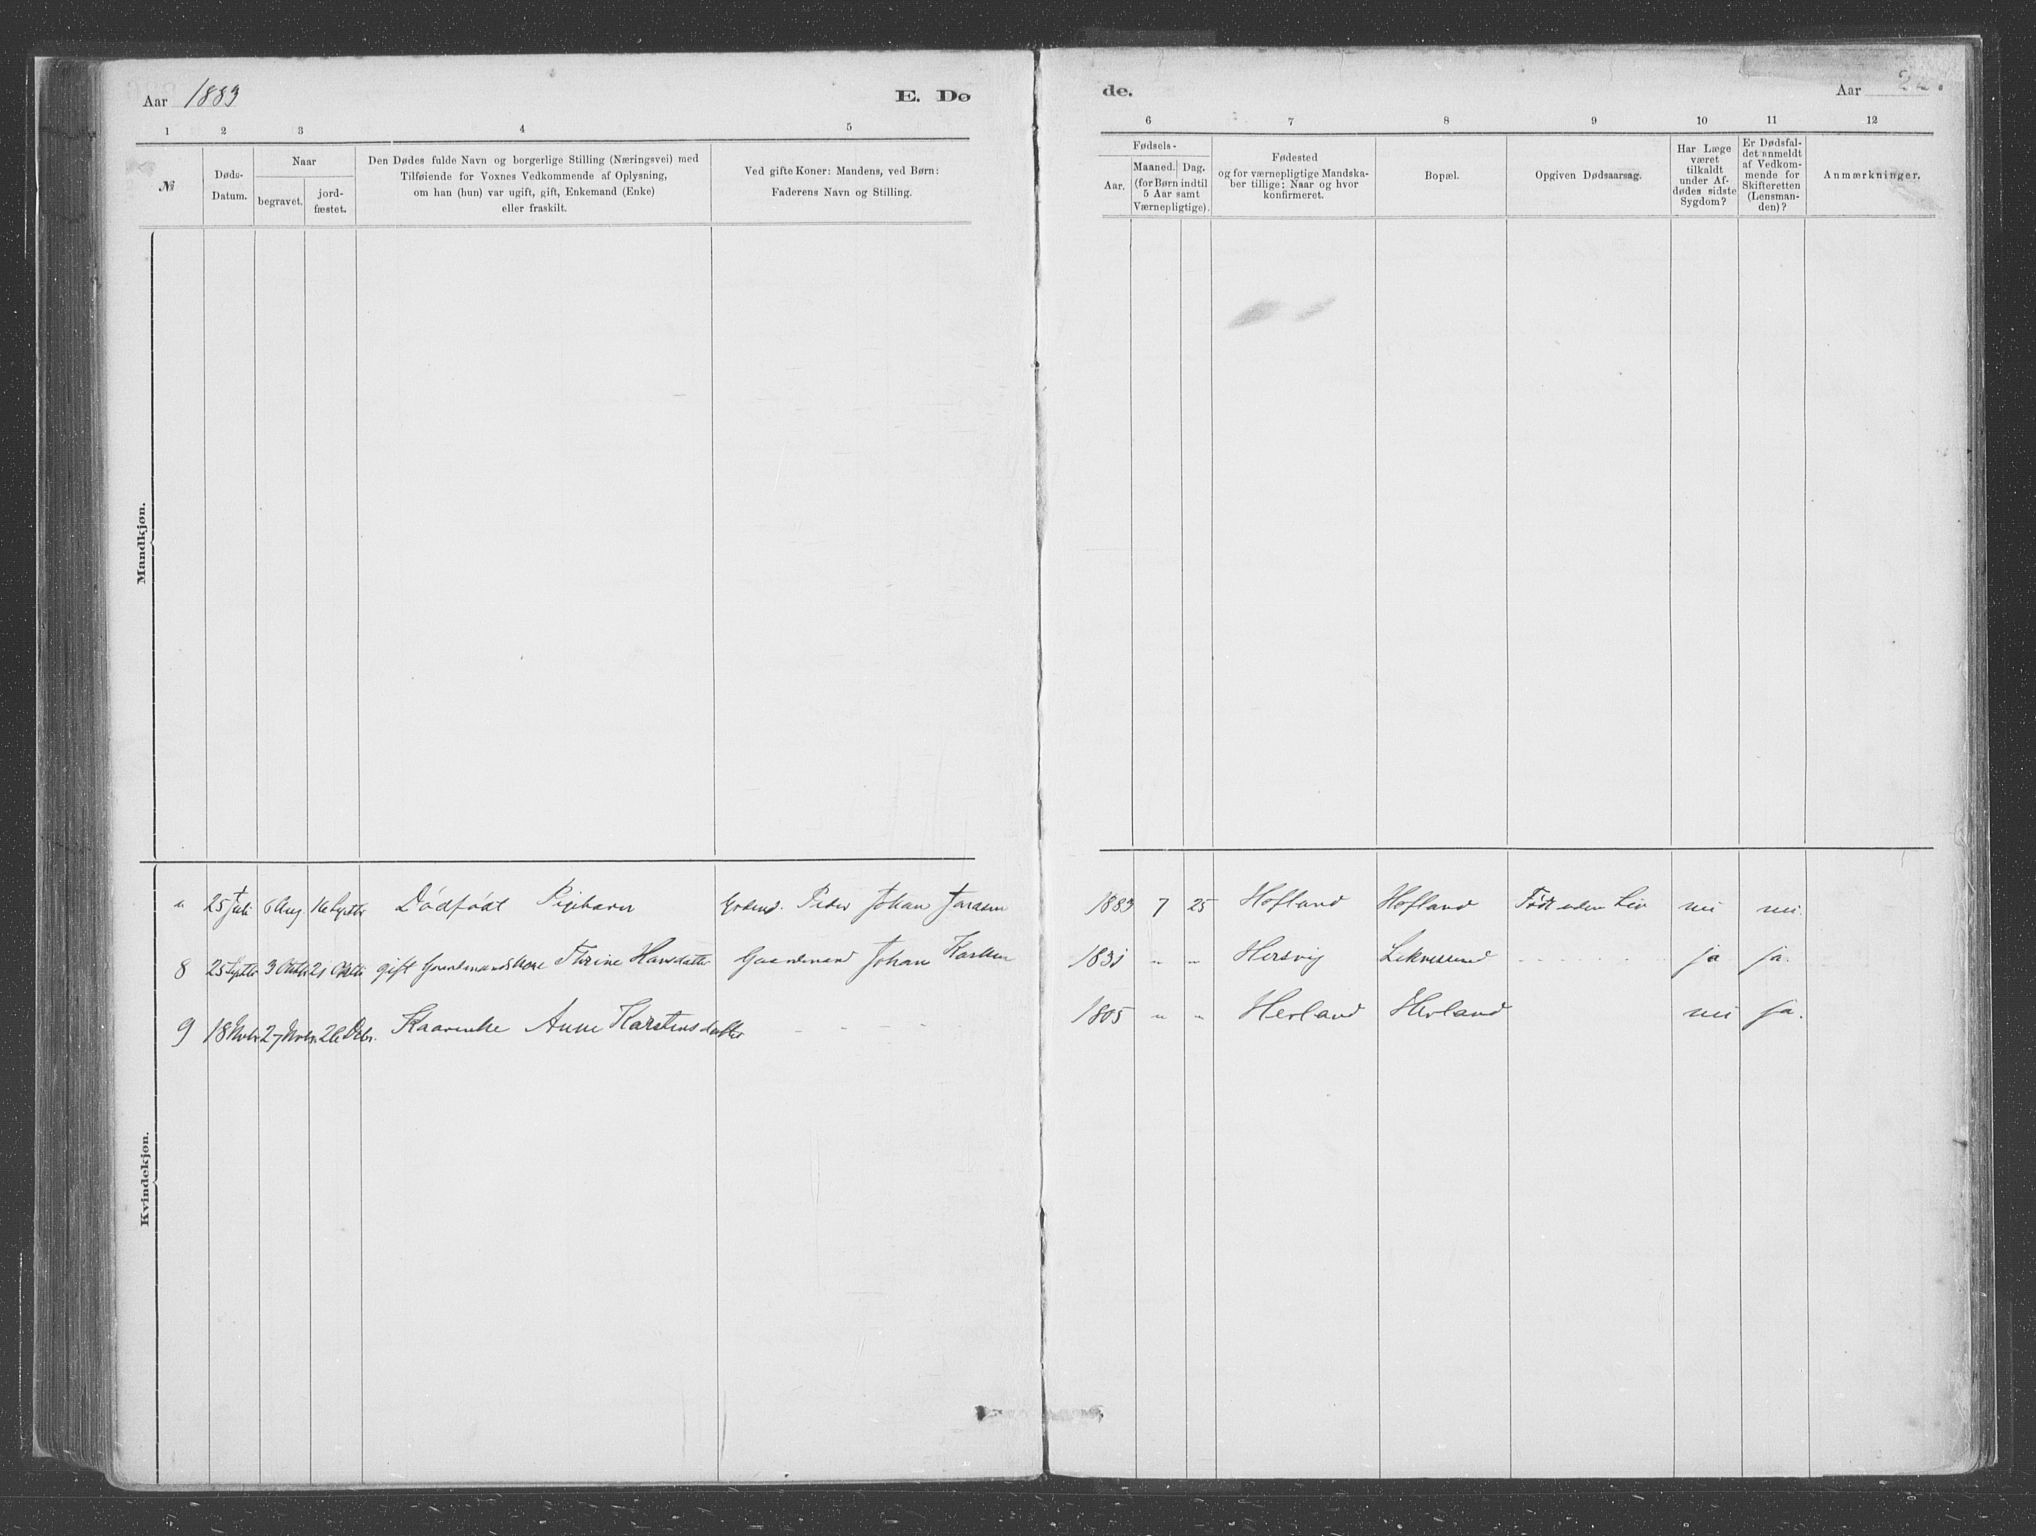 Aar 1883 E. Dø
de. Aar
1 2 3 4 5
6 7 8 9 10 11 12
№
Døds-
Datum.
Naar
begravet.
jord-
fæstet.
Den Dødes fulde Navn og borgerlige Stilling (Næringsvei) med
Tilføiende for Voxnes Vedkommende af Oplysning,
om han (hun) var ugift, gift, Enkemand (Enke)
eller fraskilt.
Ved gifte Koner: Mandens, ved Børn:
Faderens Navn og Stilling.
Fødsels-
Aar.
Maaned. Dag.
(for Børn indtil
5 Aar samt
Værnepligtige).
Fødested
og for værnepligtige Mandska-
ber tillige: Naar og hvor
konfirmeret.
Bopæl.
Opgiven Dødsaarsag.
Har Læge
været
tilkaldt
under Af-
dødes sidste
Sygdom?
Er Dødsfal-
det anmeldt
af Vedkom-
mende for
Skifteretten
(Lensman-
den)?
Anmærkninger.
Mandkjøn.
Kvindekjøn.
" 25 Juli 6 Aug. 16 Septbr Dødfødt Pigebarn Gbrmd. Peder Johan 1883 7 25 Hofland Hofland Født uden Liv nei nei.
8 25 Septbr 3 Oktbr 21 Oktbr gift Gaardmandskone Thrine Hansdatter Gaardmand Johan Karsten 1831 " " Hersvig ja ja.
9 18 Nvbr 27 Nvbr. 26 Dcbr. Kaarenke Anne Karstensdatter 1805 " " Herland Herland nei ja.